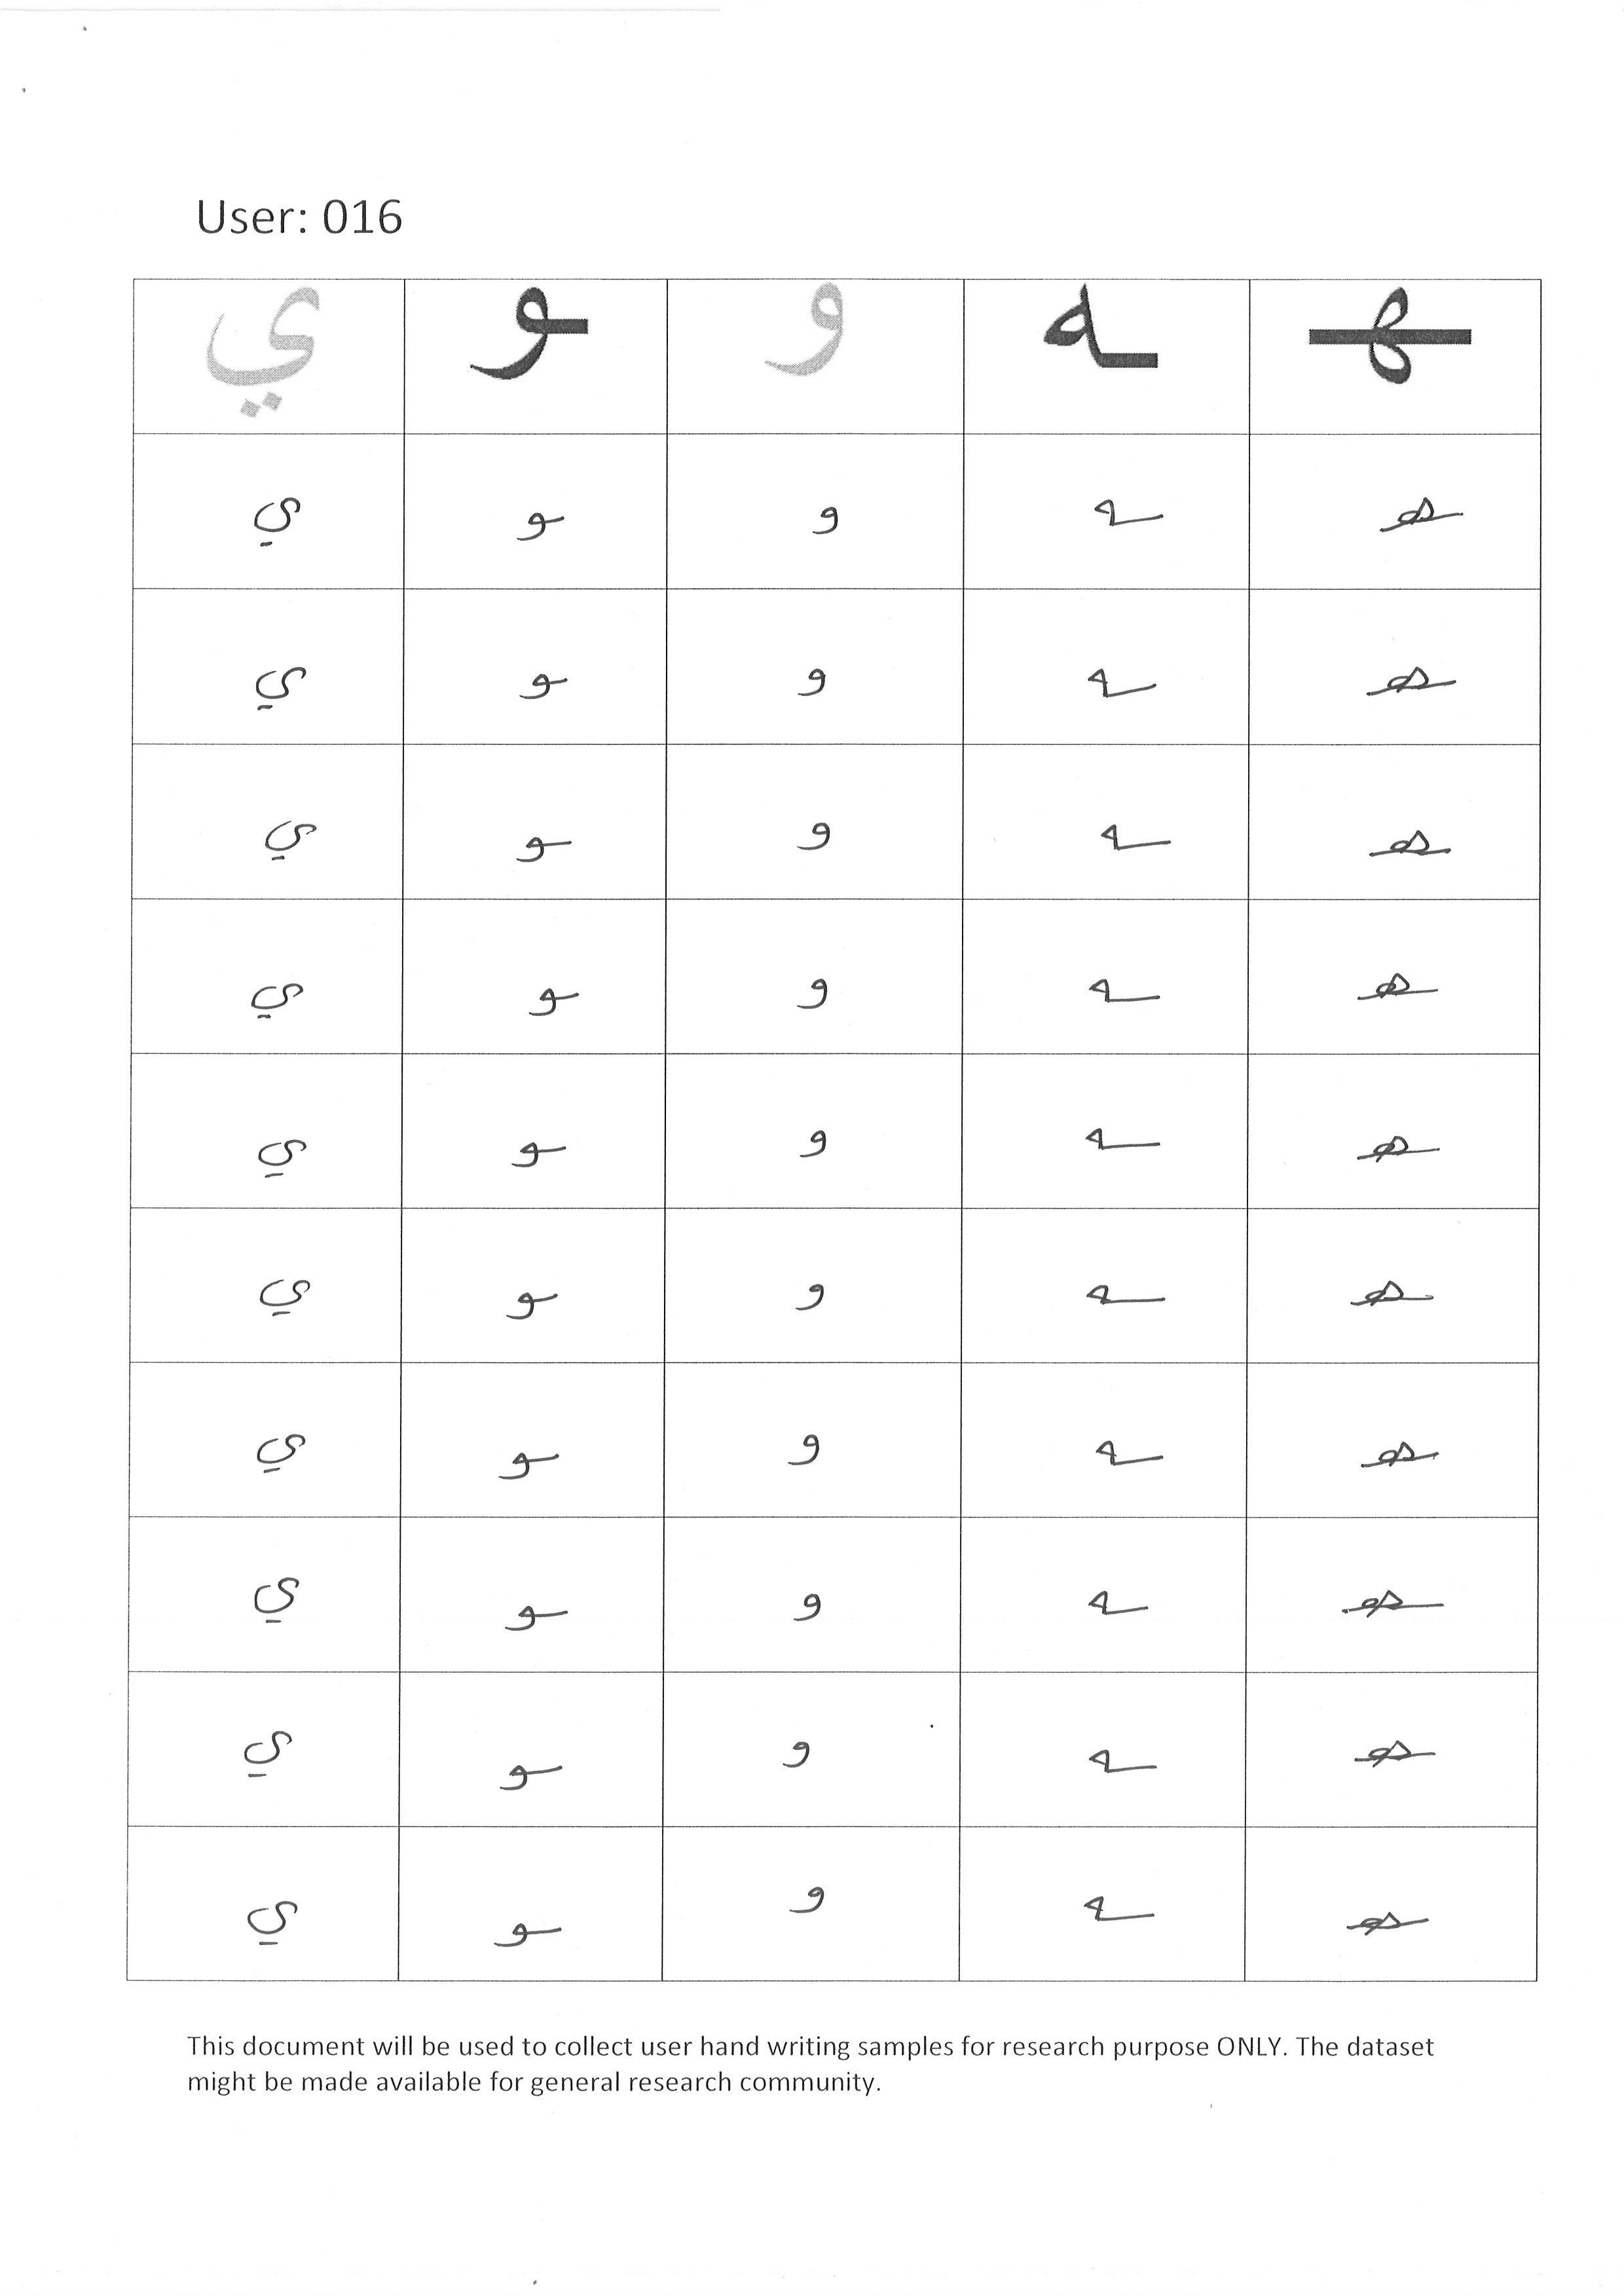 User: 016
ي ـو و ـه ـهـ
ي ـو و ـه ـهـ
ي ـو و ـه ـهـ
ي ـو و ـه ـهـ
ي ـو و ـه ـهـ
ي ـو و ـه ـهـ
ي ـو و ـه ـهـ
ي ـو و ـه ـهـ
ي ـو و ـه ـهـ
ي ـو و ـه ـهـ
ي ـو و ـه ـهـ
This document will be used to collect user hand writing samples for research purpose ONLY. The dataset
might be made available for general research community.